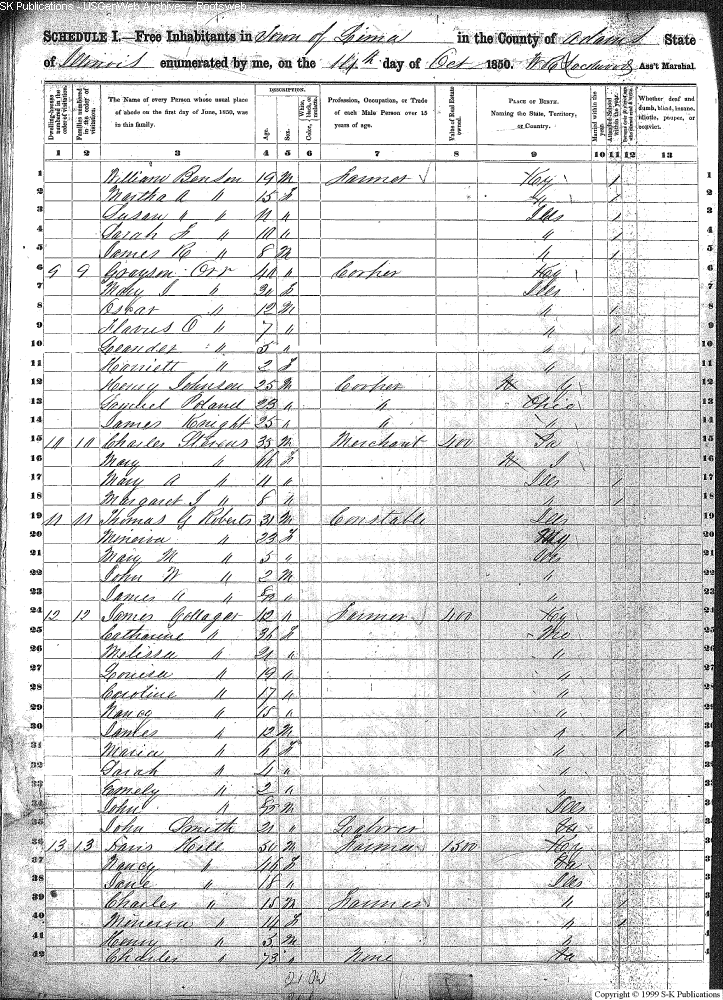 SK Publications - USGenWeb Archives - Rootsweb
SCHEDULE I.—Free Inhabitants in Town of Lima in the County of Adams State
of Illinois enumerated by me, on the 14th day of Oct 1850. Ass't Marshal.
Dwelling-houses numbered in the order of visitation.
Families numbered in the order of visitation.
The Name of every Person whose usual place of abode on the first day of June, 1850, was in this family.
DESCRIPTION.
Age.
Sex.
Color, White, black, or mulatto.
Profession, Occupation, or Trade of each Male Person over 15 years of age.
Value of Real Estate owned.
PLACE OF BIRTH. Naming the State, Territory, or Country.
Married within the year.
Attended School within the year.
Whether deaf and dumb, blind, insane, idiotic, pauper, or convict.
1 2 3 4 5 6 7 8 9 10 11 12 13
1 William Benson 19 M Farmer Ky 1 1
2 Martha A " 15 F " 1 2
3 Susan " " 11 " Ills 1 3
4 Sarah F " 10 " " 1 4
5 James R " 8 M " 1 5
6 9 9 Grayson Orr 40 " Ky 6
7 Mary J " F Ills 7
8 Oscar " 12 M " 1 8
9 Flavius O " 7 " " 1 9
10 Leander " 5 " " 10
11 Harriett " 2 F " 11
12 Henry Johnson 25 M 12
13 Samuel Poland 23 " " Ohio 13
14 James Knight 25 " " " 14
15 10 10 Charles Stevens 35 M Merchant 400 15
16 Mary " F 16
17 Mary A " 11 " Ills 1 17
18 Margaret J " 8 " " 1 18
19 11 11 Thomas G Roberts 31 M Constable Ills 19
20 Minerva " 23 F 20
21 Mary M " 5 " Ills 21
22 John W " 2 M " 22
23 James A " " " 23
24 12 12 James 42 " Farmer 400 Ky 24
25 Catharine " 36 F 25
26 Melissa " 21 " " 26
27 Louisa " 19 " " 27
28 Caroline " 17 " " 28
29 Nancy " 15 " " 29
30 James " 12 M " 1 30
31 Maria " 6 F " 31
32 Sarah " 4 " " 32
33 Emely " 2 " " 33
34 John " M Ills 34
35 John Smith 21 " Laborer 35
36 13 13 Davis Hill 50 M Farmer 1500 Ky 36
37 Nancy " 46 F 37
38 Jane " 18 " Ills 38
39 Charles " 15 M Farmer " 1 39
40 Minerva " 14 F " 1 40
41 Henry " 5 M " 41
42 Charles " 73 " None 42
Copyright © 1999 S-K Publications